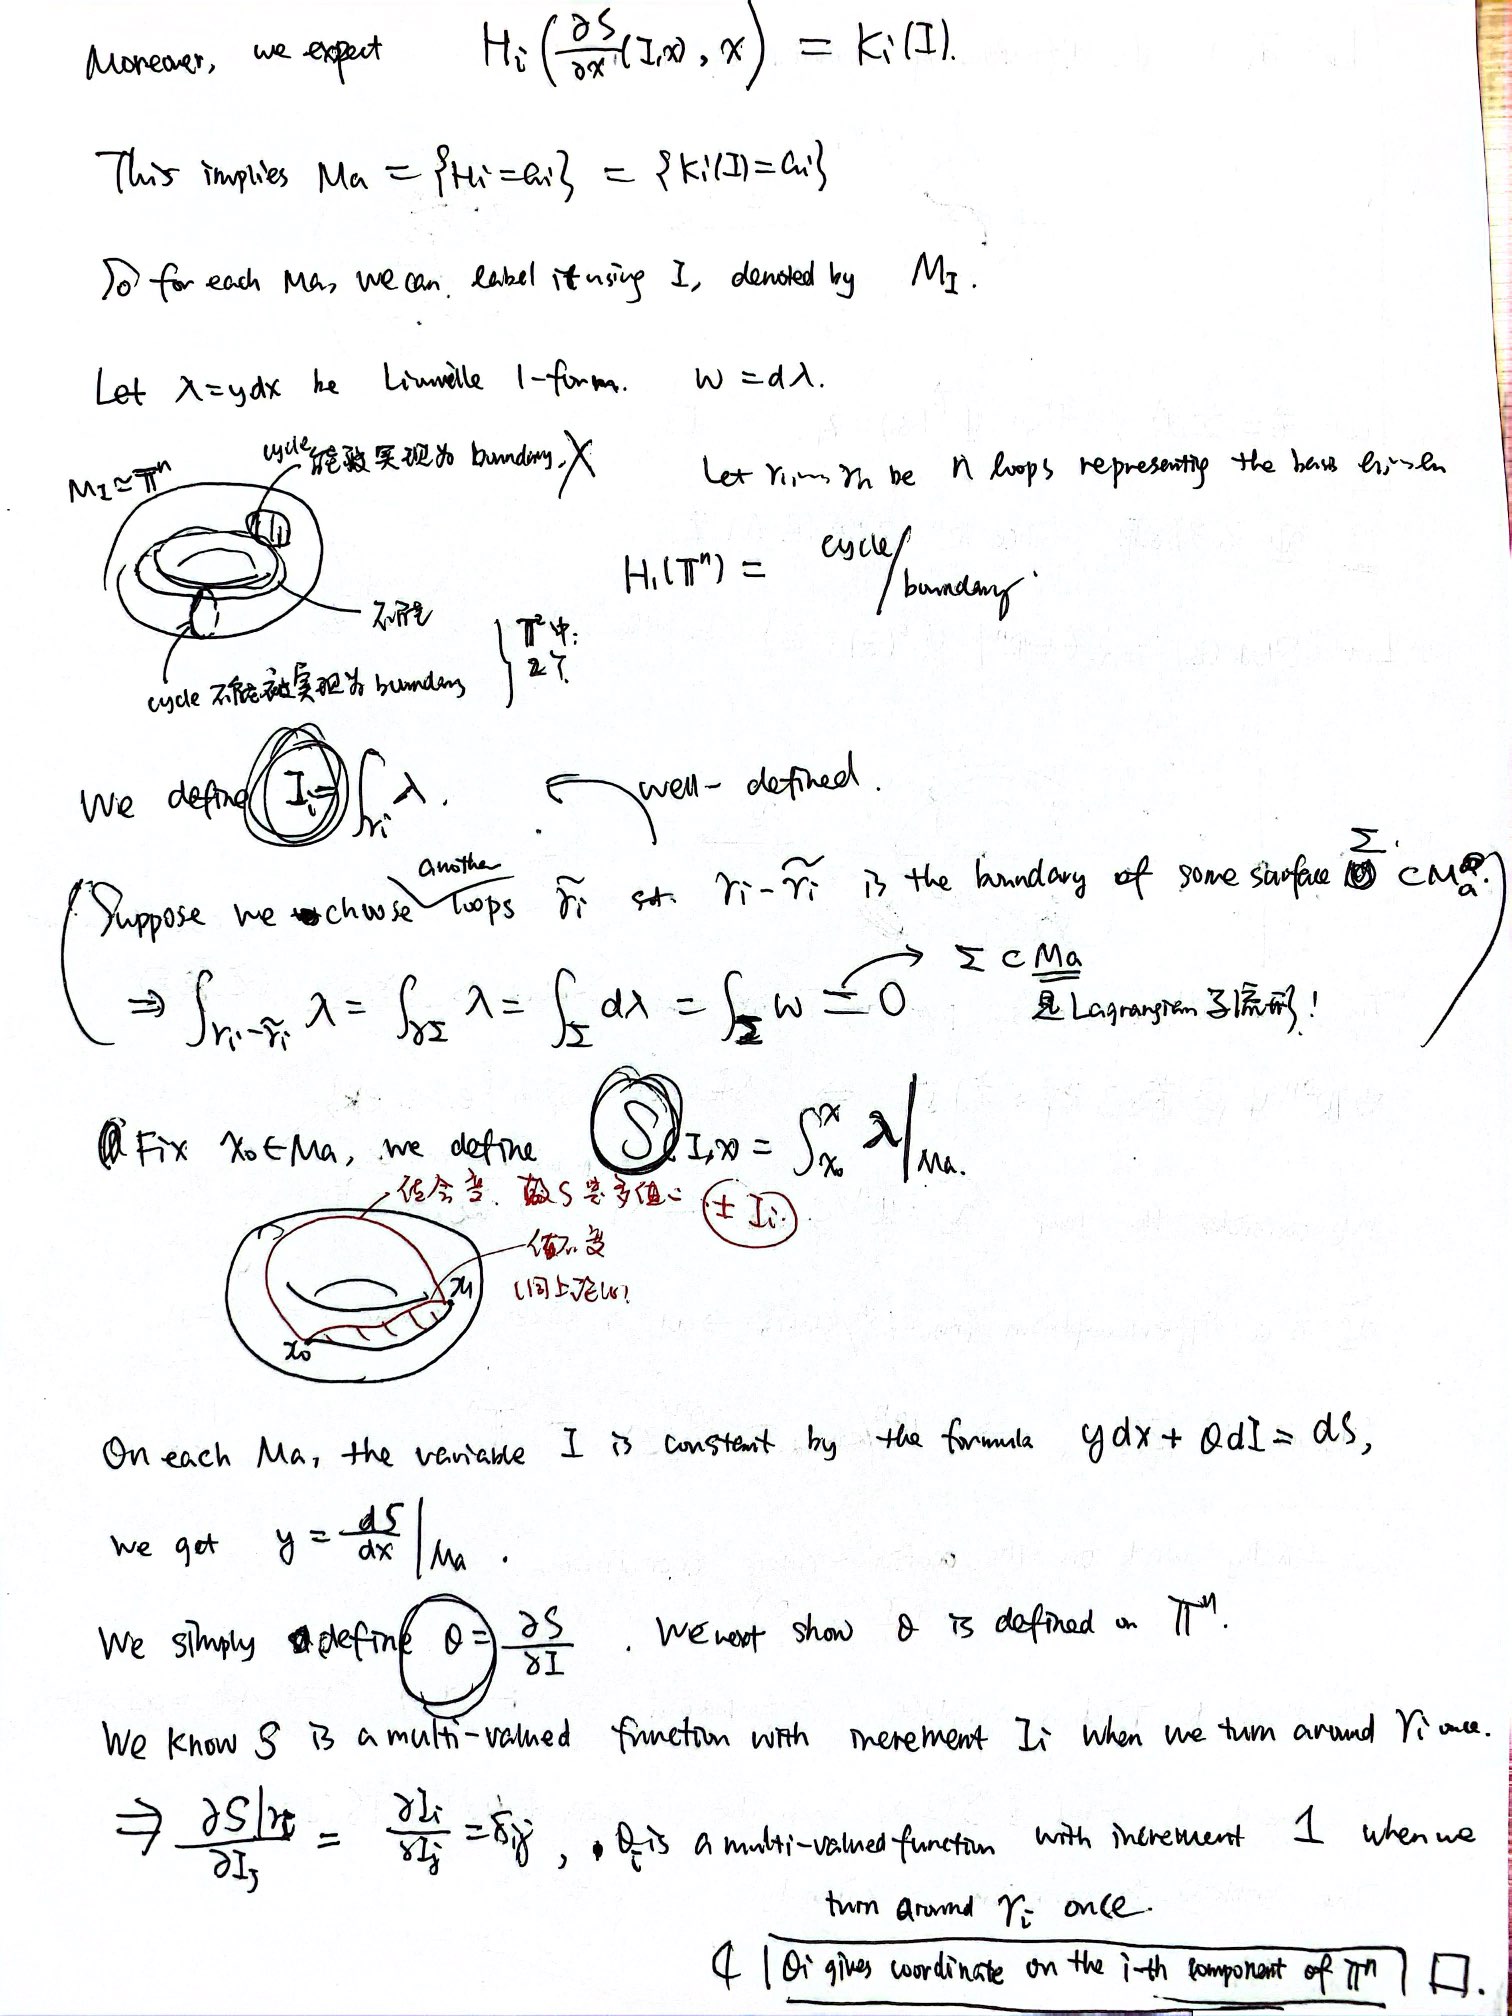 Moreover, we expect Hi(∂S/∂x(I,x), x) = Ki(I).
This implies Ma = {Hi=ai} = {Ki(I)=ai}
So for each Ma, we can label it using I, denoted by M_I.
Let λ=ydx be Liouville 1-form. ω=dλ.
cycle 能被实现为 boundary, X
M_I≃𝕋ⁿ
Let γ1,…,γn be n loops representing the basis e1,…,en
H₁(𝕋ⁿ) = cycle/boundary.
不能
𝕋² 中:
2个
cycle 不能被实现为 boundary
We define Ii=∫γi λ. well-defined.
another
Suppose we choose loops γ̃i s.t. γi-γ̃i is the boundary of some surface Σ ⊂ Ma.
⇒ ∫γi-γ̃i λ = ∫∂Σ λ = ∫Σ dλ = ∫Σ ω = 0 Σ ⊂ Ma
是 Lagrangian 子流形!
Fix x₀∈Ma, we define S(I,x) = ∫ₓ₀ˣ λ|Ma.
值会变. S 是多值: ± Ii.
值不变
(同上论证)
x₁
x₀
On each Ma, the variable I is constant by the formula ydx + θdI = dS,
we get y = dS/dx |Ma.
We simply define θ = ∂S/∂I. We next show θ is defined on 𝕋ⁿ.
We know S is a multi-valued function with increment Ii when we turn around γi once.
⇒ ∂S|γi/∂Ij = ∂Ii/∂Ij = δij, θi is a multi-valued function with increment 1 when we
turn around γi once.
θi gives coordinate on the i-th component of 𝕋ⁿ □.